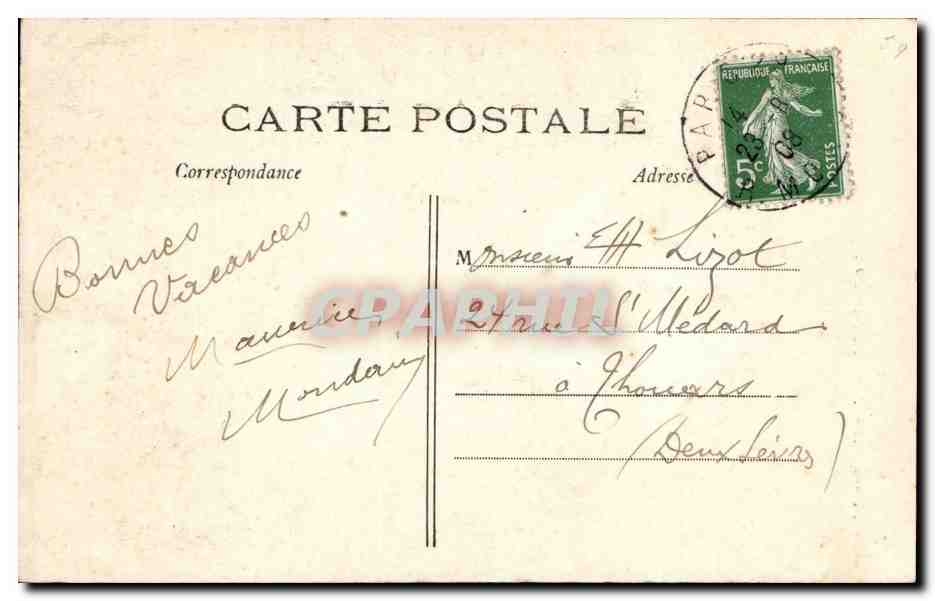 CARTE POSTALE
Correspondance
Adresse
RÉPUBLIQUE FRANÇAISE
5c
POSTES
PARIS
14
23 - 8
08
Bonnes
Vacances
Maurice
Monsieur Lizot
24 rue St Médard
à Thouars
(Deux Sèvres)
CPAPHIL